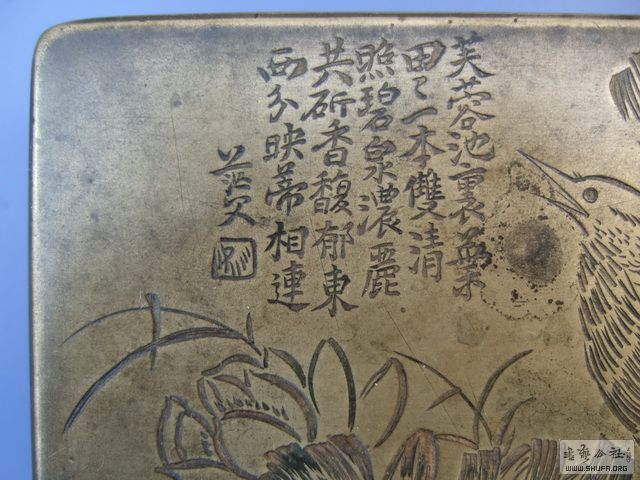 芙蓉池裏葉
田〻一本雙清
照碧泉濃麗
共斫香馥郁東
西分映蒂相連
茫父
WWW.SHUFA.ORG